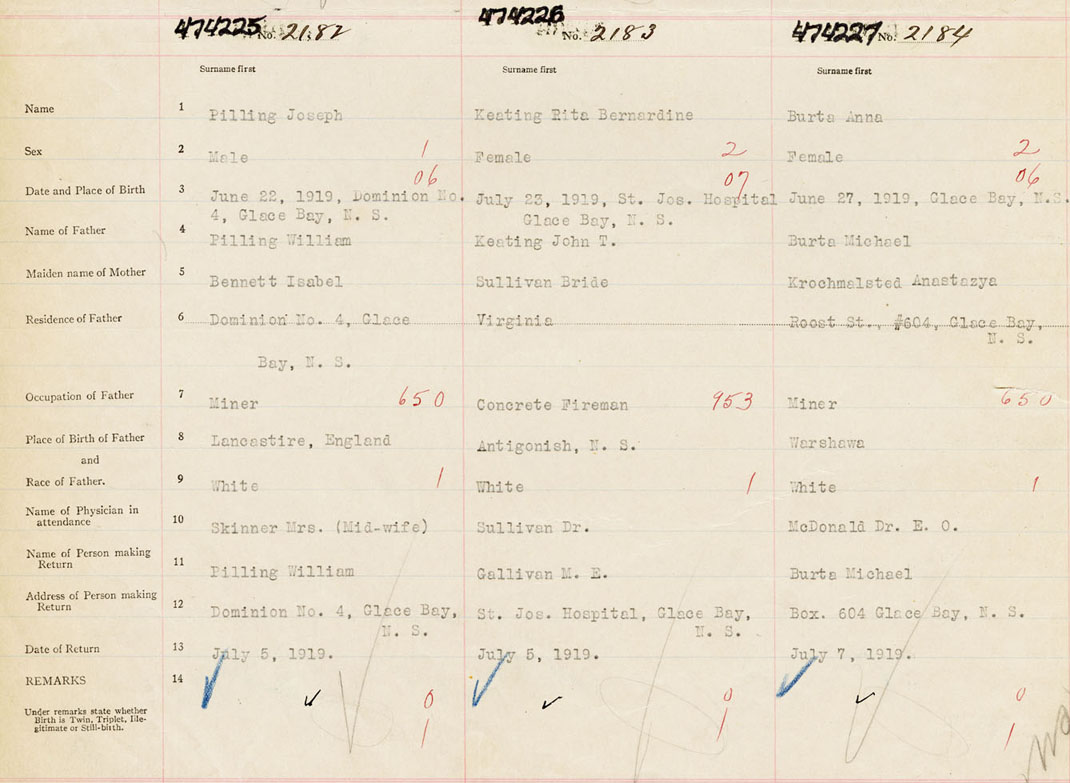 474225 No. 2182 474226 No. 2183 474227 No. 2184
Surname first Surname first Surname first
Name 1 Pilling Joseph Keating Rita Bernardine Burta Anna
Sex 2 Male 1 Female 2 Female 2
06 07 06
Date and Place of Birth 3 June 22, 1919, Dominion No. July 23, 1919, St. Jos. Hospital June 27, 1919, Glace Bay, N.S.
4, Glace Bay, N. S. Glace Bay, N. S.
Name of Father 4 Pilling William Keating John T. Burta Michael
Maiden name of Mother 5 Bennett Isabel Sullivan Bride Krochmalsted Anastazya
Residence of Father 6 Dominion No. 4, Glace Virginia Roost St., #604, Glace Bay,
N. S.
Bay, N. S.
Occupation of Father 7 Miner 650 Concrete Fireman 953 Miner 650
Place of Birth of Father 8 Lancastire, England Antigonish, N. S. Warshawa
and
Race of Father. 9 White 1 White 1 White 1
Name of Physician in
attendance 10 Skinner Mrs. (Mid-wife) Sullivan Dr. McDonald Dr. E. O.
Name of Person making
Return 11 Pilling William Gallivan M. E. Burta Michael
Address of Person making
Return 12 Dominion No. 4, Glace Bay, St. Jos. Hospital, Glace Bay, Box. 604 Glace Bay, N. S.
N. S. N. S.
Date of Return 13 July 5, 1919. July 5, 1919. July 7, 1919.
REMARKS 14
0 0 0
Under remarks state whether
Birth is Twin, Triplet, Ille-
gitimate or Still-birth.
1 1 1